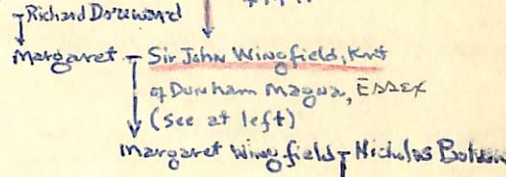 Richard Doreward
Margaret - Sir John Wingfield, Knt
of Dunham Magna, ESSEX
(See at left)
Margaret Wingfield - Nicholas